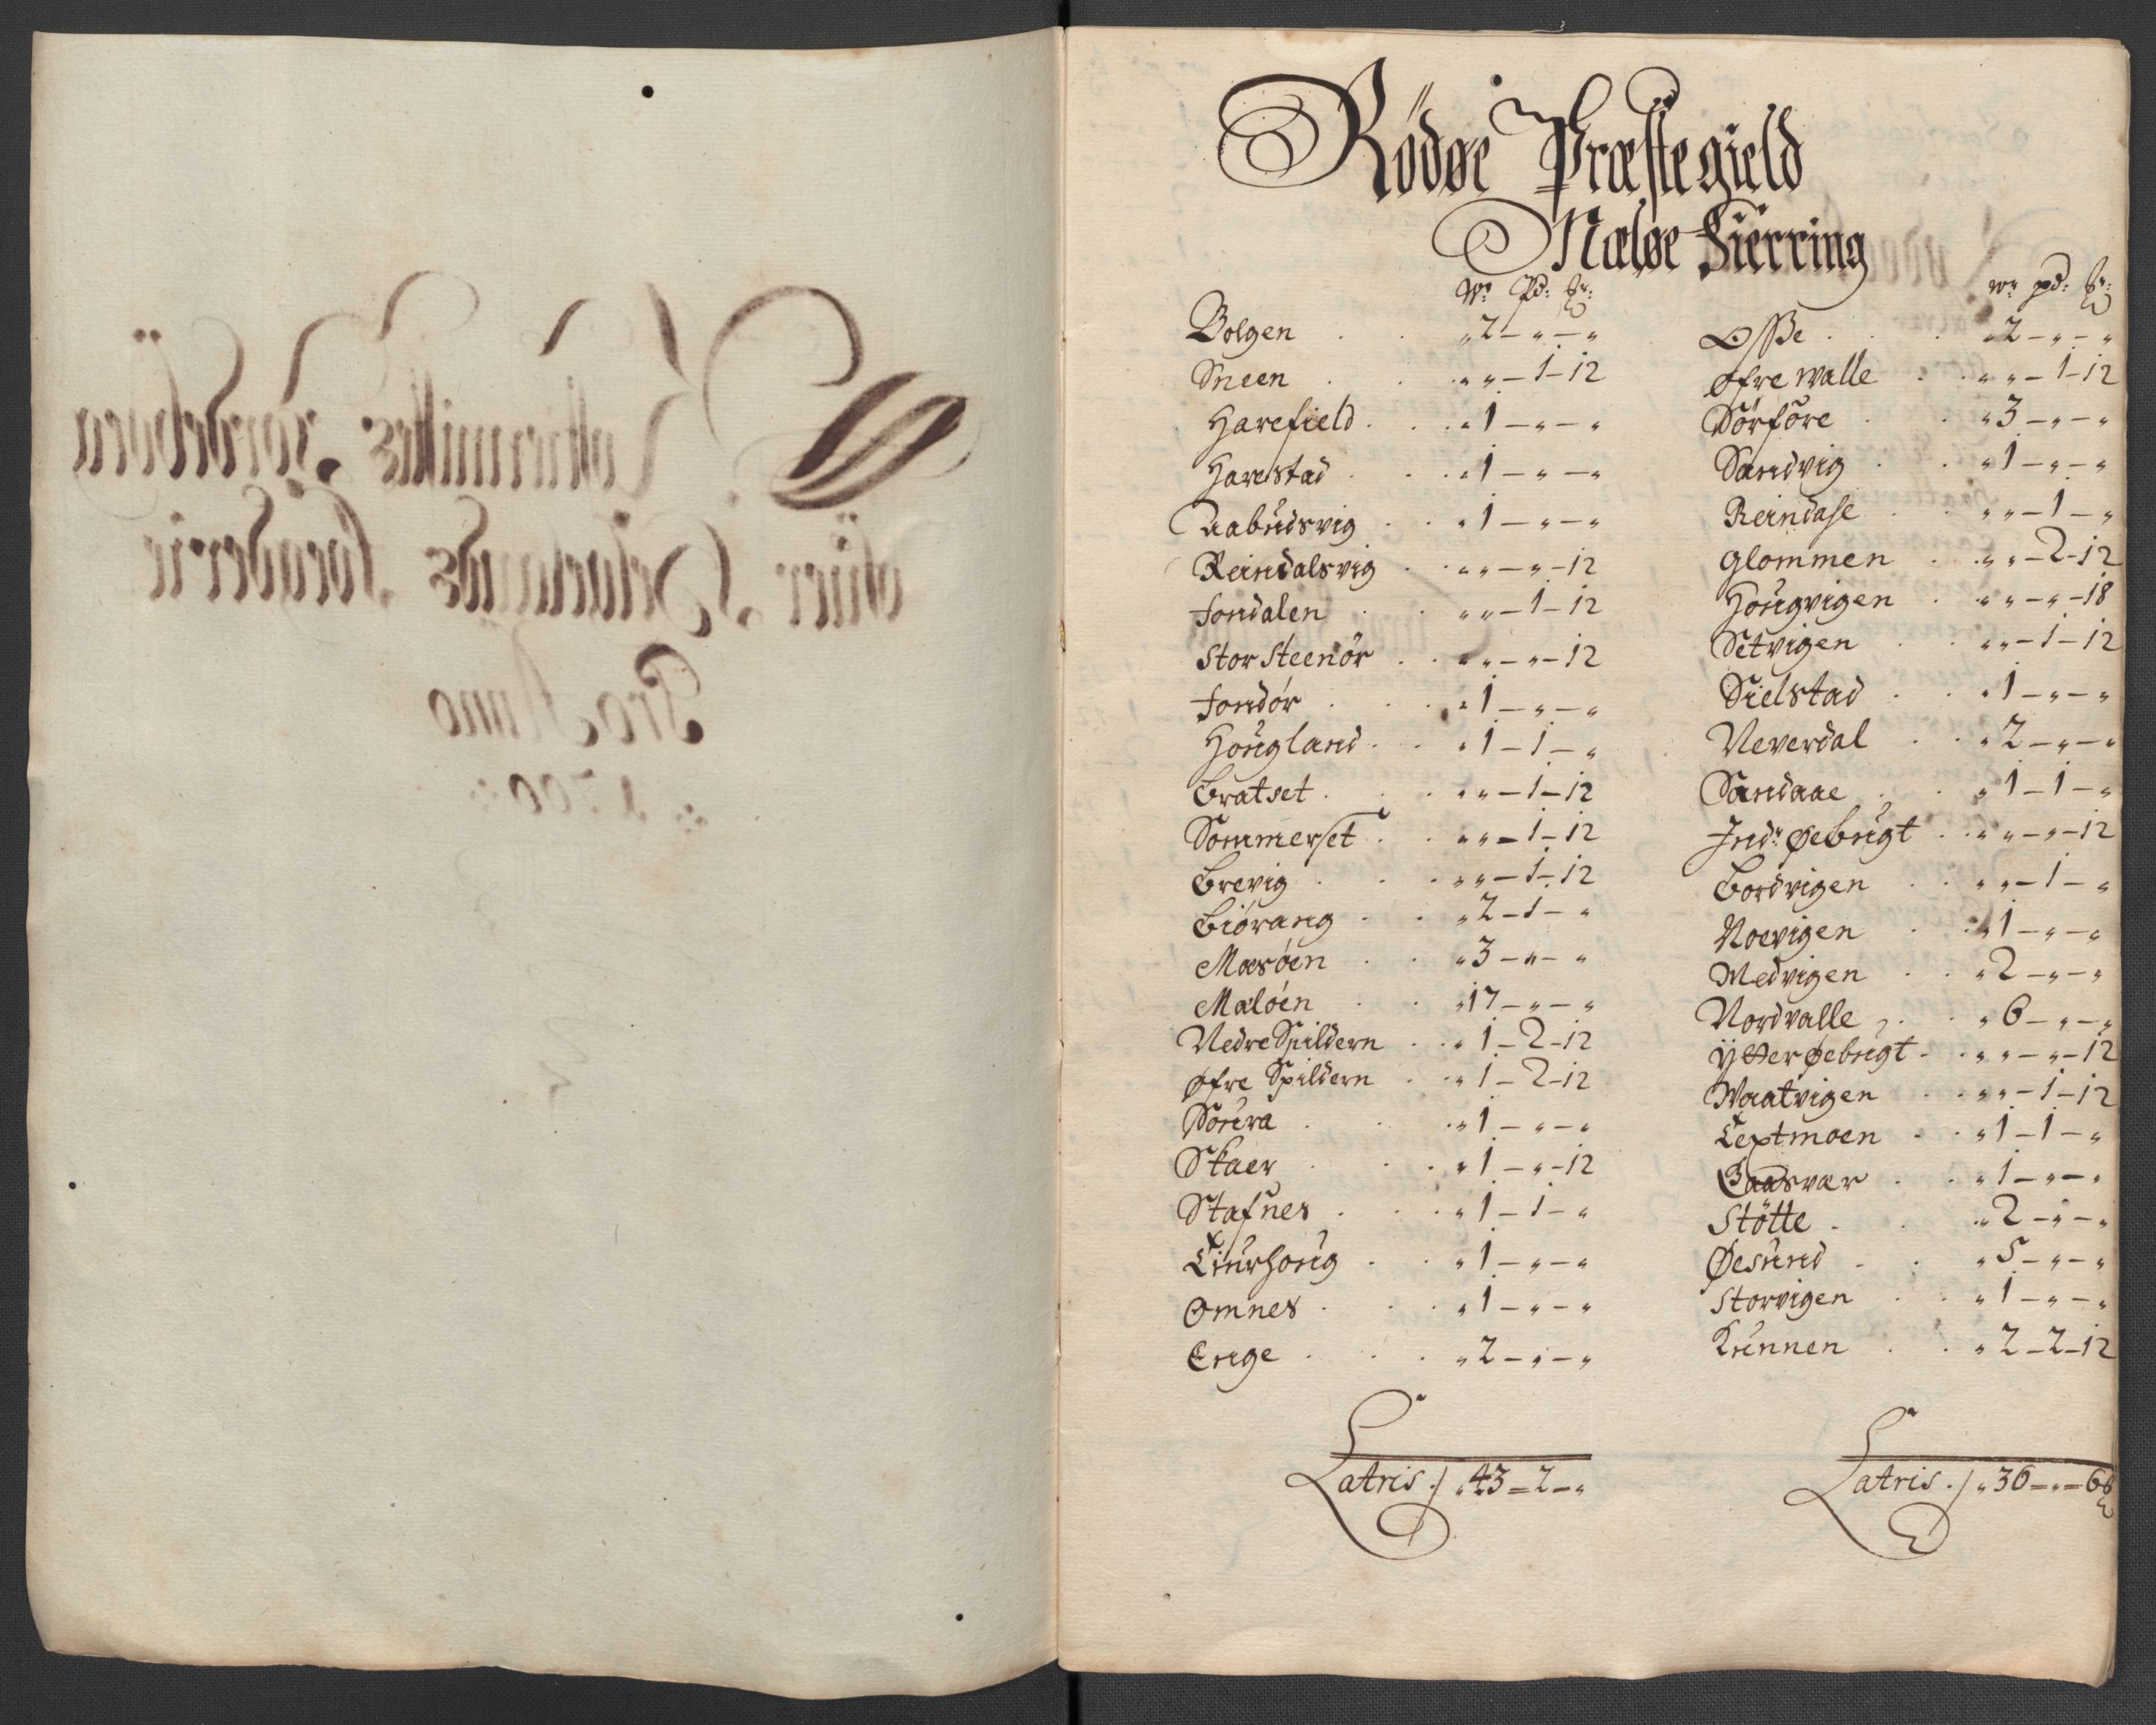 Rödøe Præstegield
Mæløe Fierring
Wr Pd: tr:
Bolgen . . „ 2 – „ – „
Sneen . . „ „ – 1 – 12
Harefield . . „ 1 – „ – „
Harestad . . „ 1 – „ – „
Aabudsvig . . „ 1 – „ – „
Reindalsvig . . „ „ – „ – 12
Fondalen . . „ „ – 1 – 12
Stor Steenör . . „ „ – „ – 12
Fondör . . „ 1 – „ – „
Hougland . . „ 1 – 1 – „
Bratset . . „ „ – 1 – 12
Sommerset . . „ „ – 1 – 12
Brevig . . „ „ – 1 – 12
Biörang . . „ 2 – 1 – „
Mæsöen . . „ 3 – „ – „
Mælöen . . „ 17 – „ – „
Nedre Spildern . . „ 1 – 2 – 12
Øfre Spildern . . „ 1 – 2 – 12
Soura . . „ 1 – „ – „
Skaer . . „ 1 – „ – 12
Stafnes . . „ 1 – 1 – „
Tiurhoug . . „ 1 – „ – „
Omnes . . „ 1 – „ – „
Enge . . „ 2 – „ – „
Latris ./ „ 43 = 2 – „
Wr pd: tr:
Osse . . „ 2 – „ – „
Øfre Walle . . „ „ – 1 – 12
Sörföre . . „ 3 – „ – „
Sandvig . . „ 1 – „ – „
Reindase . . „ „ – 1 – „
Glommen . . „ „ – 2 – 12
Hougvigen . . „ „ – „ – 18
Setvigen . . „ „ – 1 – 12
Sielstad . . „ 1 – „ – „
Neverdal . . „ 2 – „ – „
Sandaae . . „ 1 – 1 – „
Indr Øebugt . . „ „ – „ – 12
Bordvigen . . „ „ – 1 – „
Noevigen . . „ 1 – „ – „
Medvigen . . „ 2 – „ – „
Nordvalle . . „ 6 – „ – „
Ÿtter Øebugt . . „ „ – „ – 12
Waatvigen . . „ „ – 1 – 12
Textmoen . . „ 1 – 1 – „
Gaasvær . . „ 1 – „ – „
Stötte . . „ 2 – „ – „
Øesund . . „ 5 – „ – „
Storvigen . . „ 1 – „ – „
Kunnen . . „ 2 – 2 – 12
Latris ./ „ 36 = „ = 6